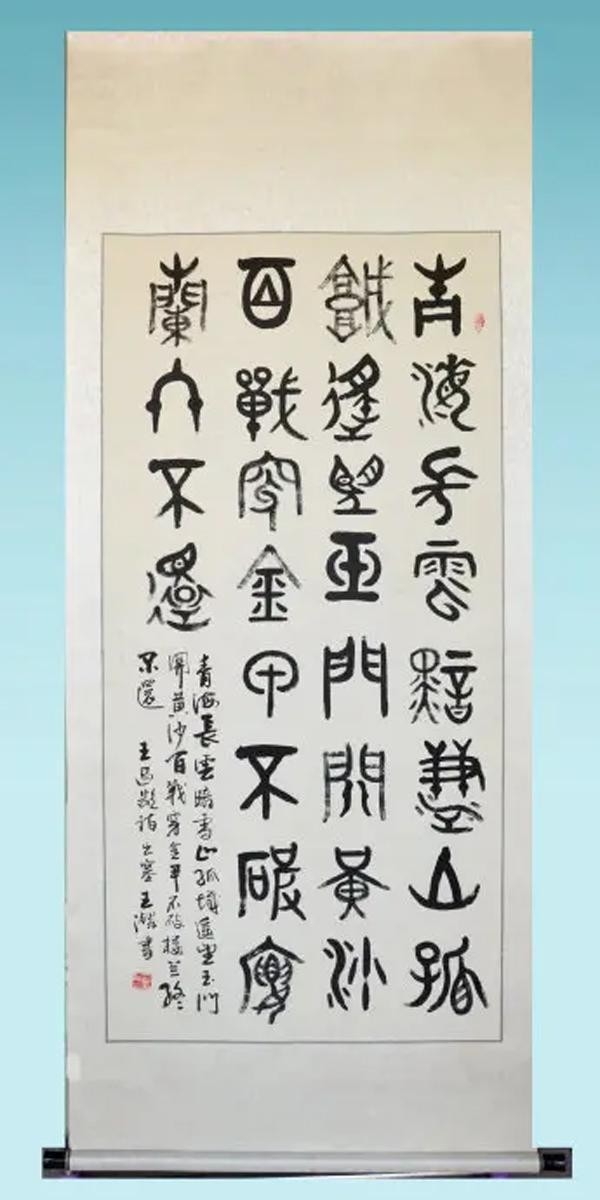 青海長雲黯雪山孤
城遥望玉門關黄沙
百戰穿金甲不破樓
蘭終不還
青海長雲暗雪山孤城遥望玉門
関黄沙百戰穿金甲不破楼兰終
不還 王昌齡詩出塞 王書